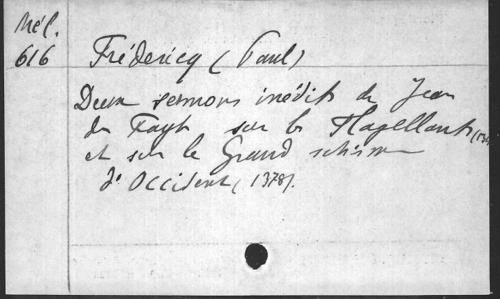 Mél.
616
Frédéricq (Paul)
Deux sermons inédits de Jean
du Fayt sur les Flagellants
et sur le Grand schisme
d'Occident (1378).